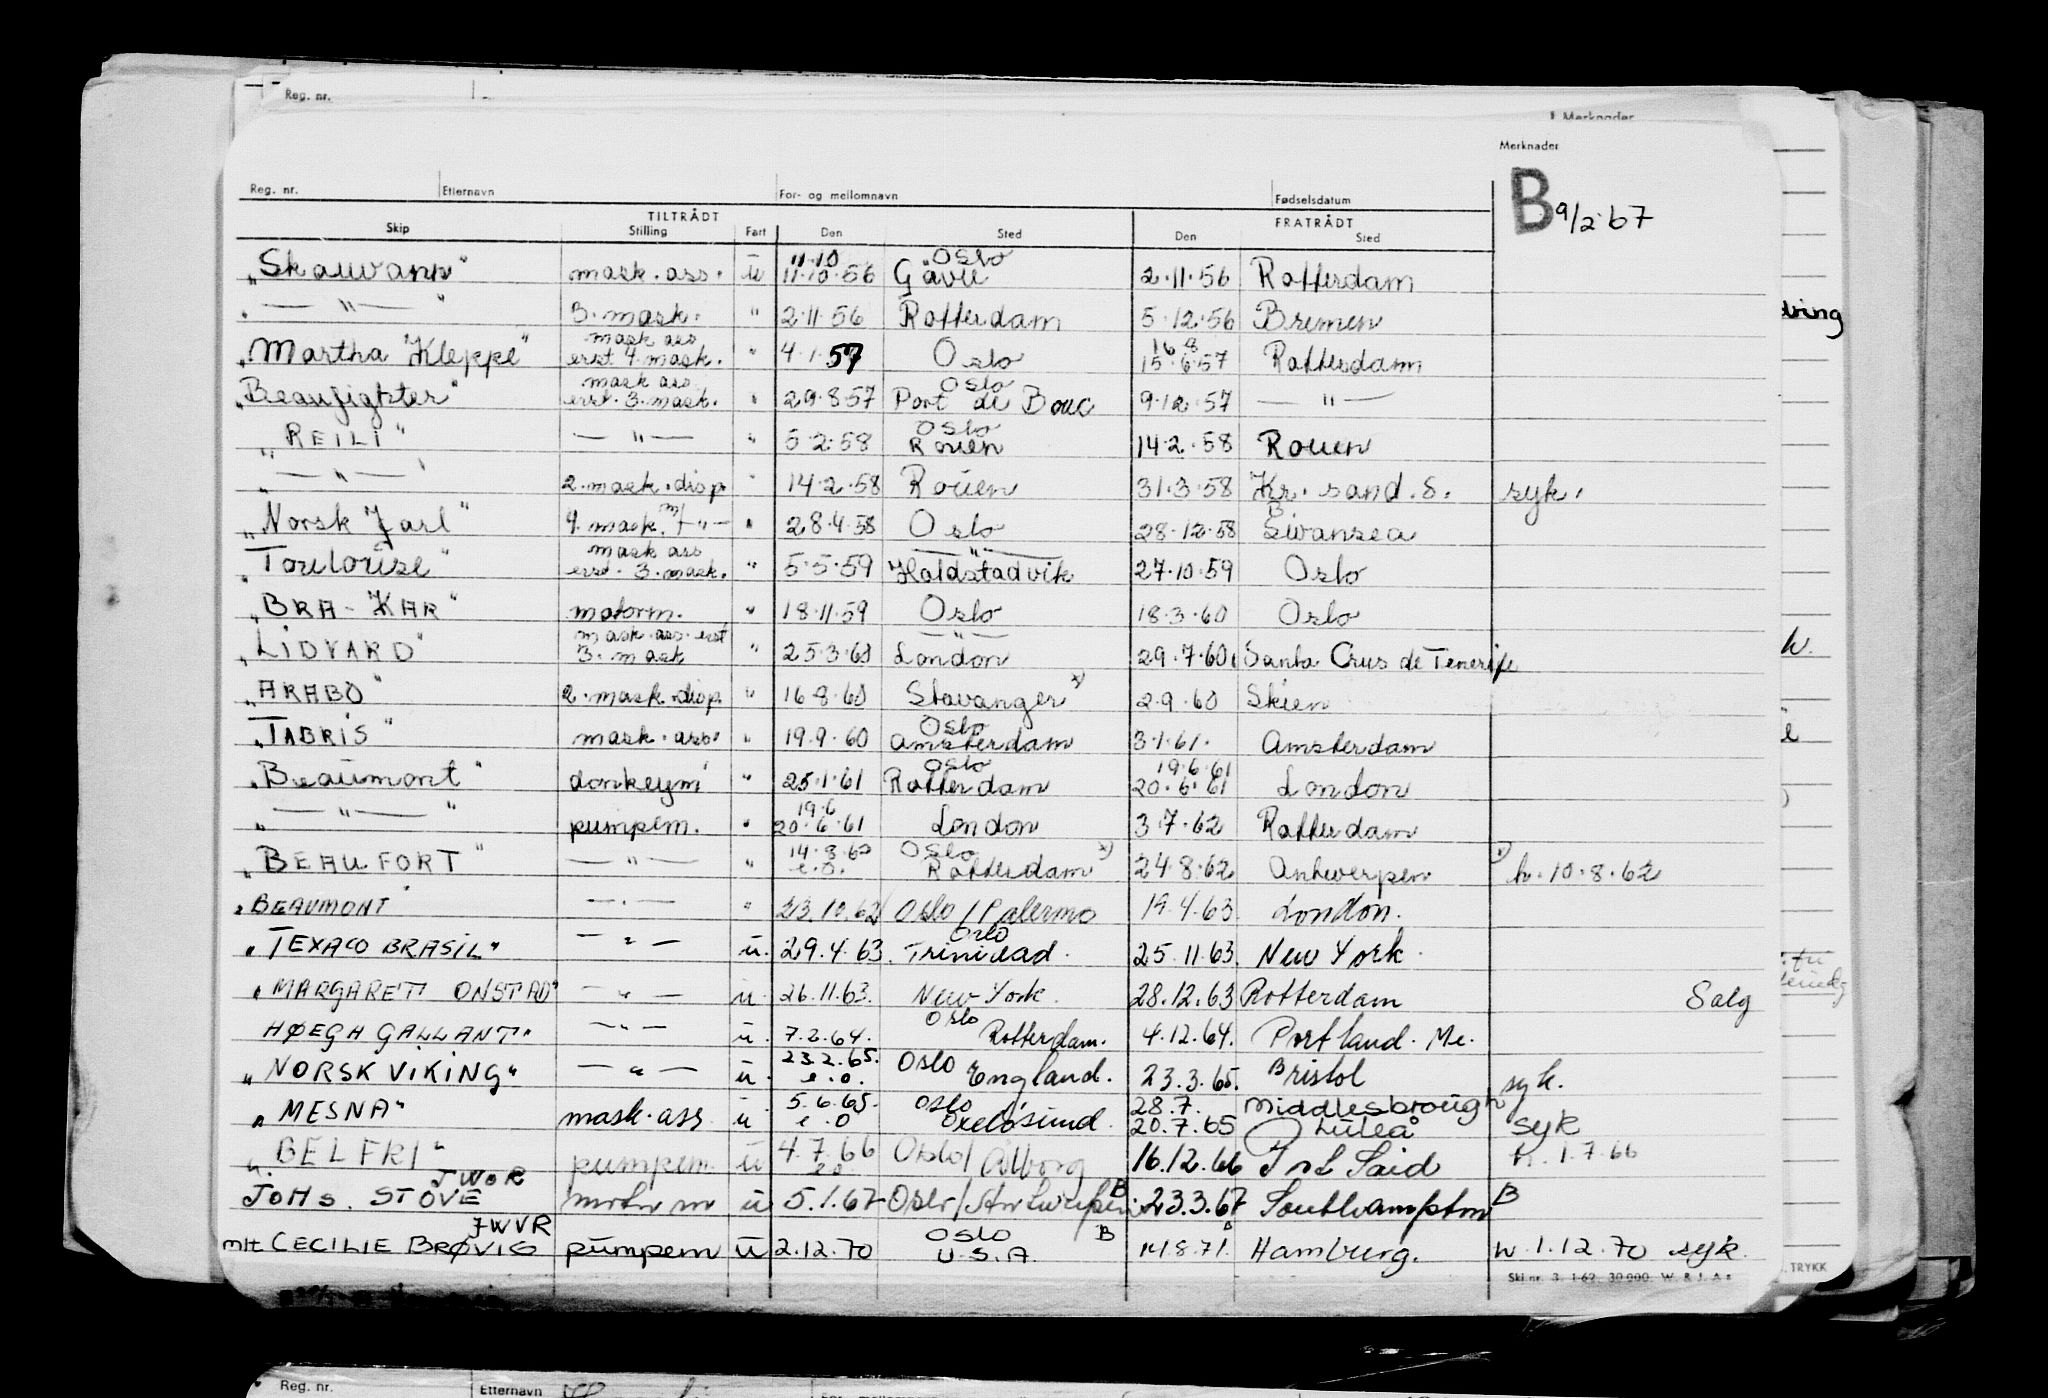 Reg. nr.
Merknader
Merknader
Reg. nr. Etternavn For- og mellomnavn Fødselsdatum
B 9/2-67
TILTRÅDT FRATRÅDT
Skip Stilling Fart Den Sted Den Sted
11-10 Oslo
"Skauvann" mask.ass. u 11.10.56 Gävle 2.11.56 Rotterdam
" — " — " 3. mask. " 2.11.56 Rotterdam 5.12.56 Bremen
mask ass 16 8
"Martha Kleppe" erst. 4. mask. " 4.1.57 Oslo 15.6.57 Rotterdam
mask ass. Oslo
"Beaufighter" erst. 3. mask. " 29.8.57 Port de Bouc 9.12.57 — " —
Oslo
"REILI" — " — " 5.2.58 Rouen 14.2.58 Rouen
" — " — " 2. mask. disp. " 14.2.58 Rouen 31.3.58 Kr. sand. S. syk.
"Norsk Jarl" 4. mask. m/ — " — " 28.4.58 Oslo 28.12.58 Swansea
mask ass — " —
"Toulouse" erst. 3. mask. " 5.5.59 27.10.59 Oslo
"BRA-KAR" motorm. " 18.11.59 Oslo 18.3.60 Oslo
mask.ass. erst — " —
"LIDVARD" 3. mask " 25.3.60 London 29.7.60 Santa Crus de Tenerife
"ARABO" 2. mask. disp. " 16.8.60 Stavanger x) 2.9.60 Skien
Oslo
"TABRIS" mask.ass. " 19.9.60 Amsterdam 3.1.61. Amsterdam
Oslo 19.6.61
"Beaumont" donkeym " 25.1.61 Rotterdam 20.6.61 London
19.6
" — " — " pumpem. " 20.6.61 London 3.7.62 Rotterdam
14.8.62 Oslo
"BEAUFORT" — " — " e.o. Rotterdam x) 24.8.62 Antwerpen x) h. 10.8.62
"BEAUMONT" — " — " 23.10.62 Oslo / Palermo 19.4.63. London.
Oslo
"TEXACO BRASIL" — " — u. 29.4.63. Trinidad. 25.11.63. New York.
"MARGARET ONSTAD" — " — u. 26.11.63. New York. 28.12.63 Rotterdam Salg
Oslo
HØEGH GALLANT" — " — u. 7.2.64. Rotterdam. 4.12.64. Portland. Me.
23.2.65.
"NORSK VIKING" — " — u. e.o. Oslo England. 23.3.65. Bristol syk.
5.6.65. Oslo 28.7. Middlesbrough
"MESNA" mask.ass u e.o Oxelösund. 20.7.65 Luleå syk
"BELFRI" pumpem. u 4.7.66 e.o Oslo / Ålborg 16.12.66 Port Said h. 1.7.66
JWOR
JOHS. STOVE motorm u 5.1.67 Oslo / Antwerpen B 23.3.67 Southampton B
JWVR Oslo B
mlt CECILIE BRØVIG pumpem u 2.12.70 U.S.A. 14.8.71. Hamburg. h. 1.12.70 syk.
Skj.nr. 3. 1-62. 30 000. W. & J. A s
TRYKK
Reg. nr. Etternavn